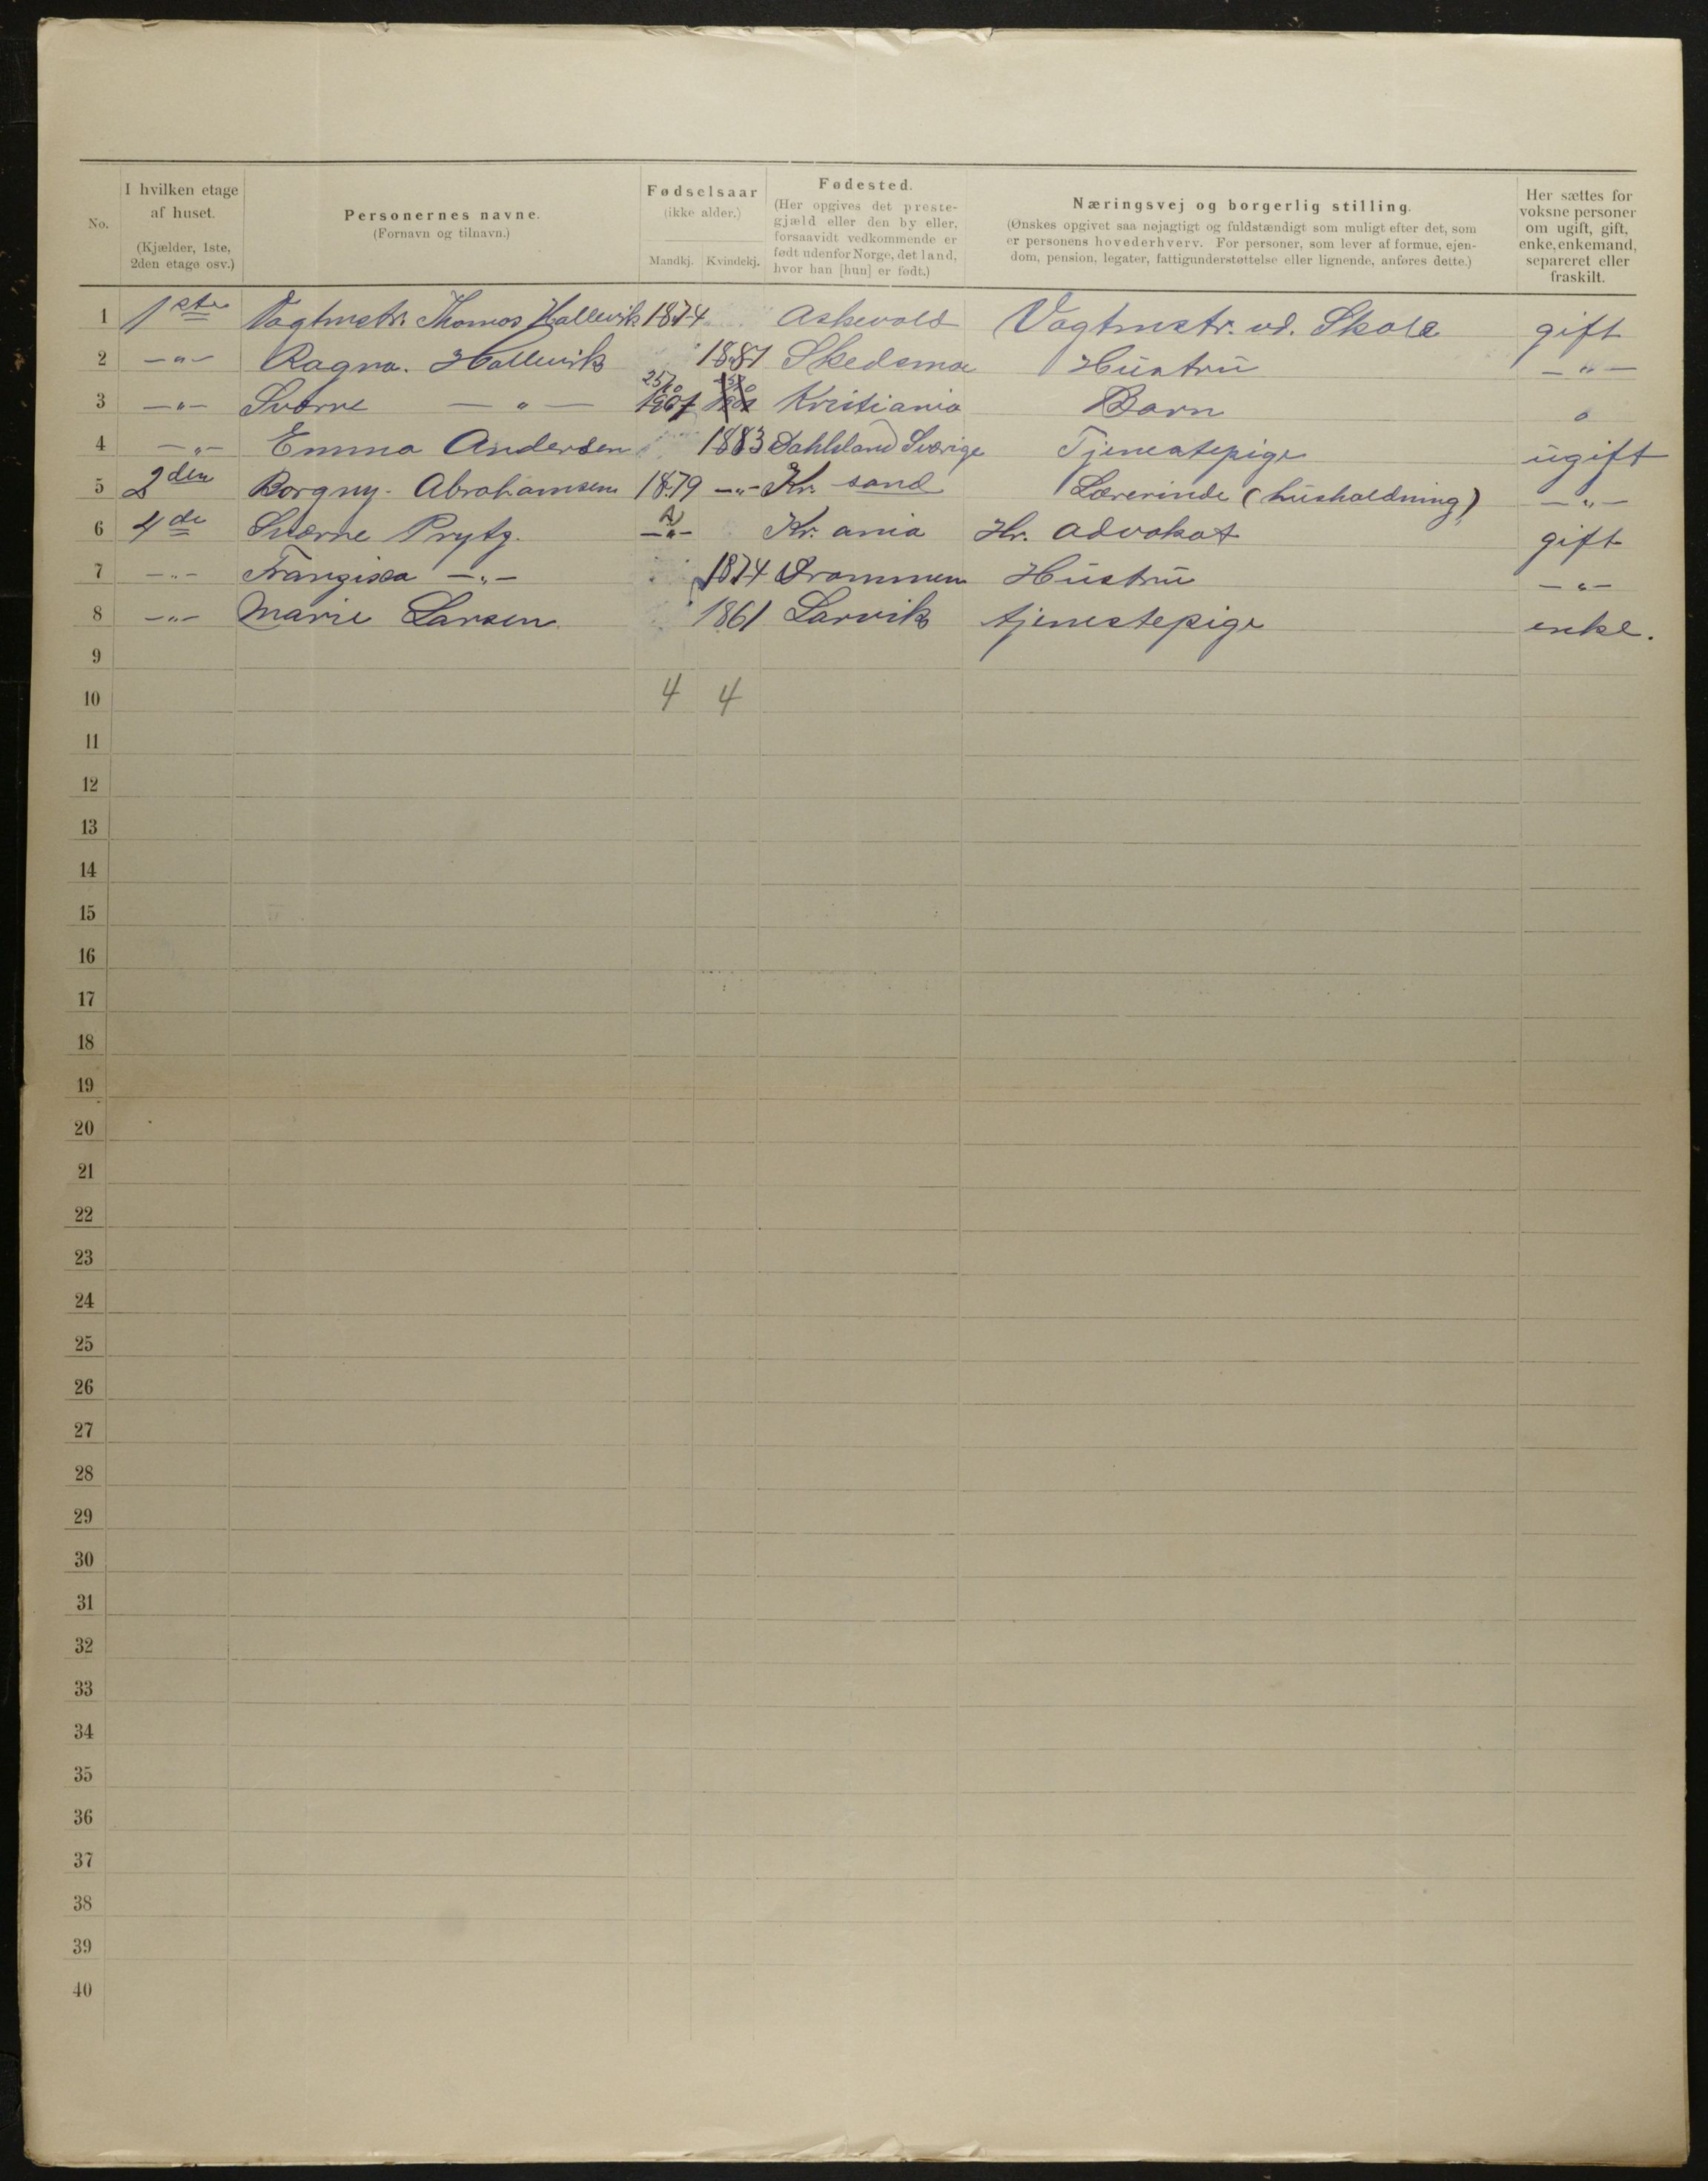 No.
I hvilken etage af huset. (Kjælder, 1ste, 2den etage osv.)
Personernes navne. (Fornavn og tilnavn.)
Fødselsaar (ikke alder.) Mandkj. Kvindekj.
Fødested. (Her opgives det prestegjæld eller den by eller, forsaavidt vedkommende er født udenfor Norge, det land, hvor han [hun] er født.)
Næringsvej og borgerlig stilling.
(Ønskes opgivet saa nøjagtigt og fuldstændigt som muligt efter det, som
er personens hovederhverv. For personer, som lever af formue, ejen-
dom, pension, legater, fattigunderstøttelse eller lignende, anføres dette.)
Her sættes for voksne personer om ugift, gift, enke, enkemand, separeret eller fraskilt.
1 1ste Vagtmstr. Thomas Hallevik 1874 Askevold Vagtmstr. vd. Skole gift
2 -"- Ragna. Hallevik 1887 Skedsmo Hüstrü -"-
3 -"- Sverre -"- 25/10 1907 Kristiania Barn o
4 -"- Emma Andersen 1883 Dahlsland Sverige Tjenestepige ügift
5 2den Borgny. Abrahamsen 1879 -"- Kr. sand Lærerinde (hüsholdning) -"-
6 4de Sverre Prytz. -"- Kr. ania Hr. Advokat gift
7 -"- Franziska -"- 1874 Drammen Hüstrü -"-
8 -"- Marie Larsen 1861 Larvik tjenestepige enke.
9
10 4 4
11
12
13
14
15
16
17
18
19
20
21
22
23
24
25
26
27
28
29
30
31
32
33
34
35
36
37
38
39
40